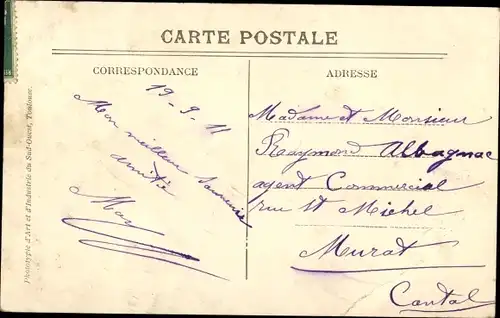 CARTE POSTALE
CORRESPONDANCE
19-9-11
Mon meilleur souvenir
amitié
May
ADRESSE
Madame et Monsieur
Raymond Albagnac
agent Commercial
rue St Michel
Murat
Cantal
Phototypie d'Art et d'Industrie du Sud-Ouest, Toulouse.